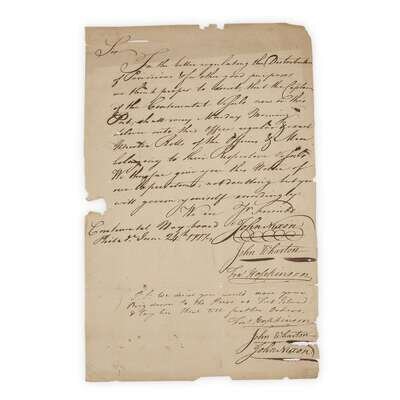 Sir
For the better regulating the Distribution
of Provisions & for other good purposes
we think proper to direct, that the Captains
of the Continental Vessels now in this
Port, shall every Monday Morning
return into this Office regular & exact
Muster Rolls of the Officers & Men
belonging to their Respective Vessels
We therefore give you this Notice of
our expectations, not doubting but you
will govern yourself accordingly
We are Yr. friends
Continental Navy board
Philada. June 24. 1777
John Nixon
John Wharton
Fras Hopkinson
P.S. We desire you would move your
Brig down to the Piers at Fort Island
& lay her there till further Orders.
Fras Hopkinson
John Wharton
John Nixon